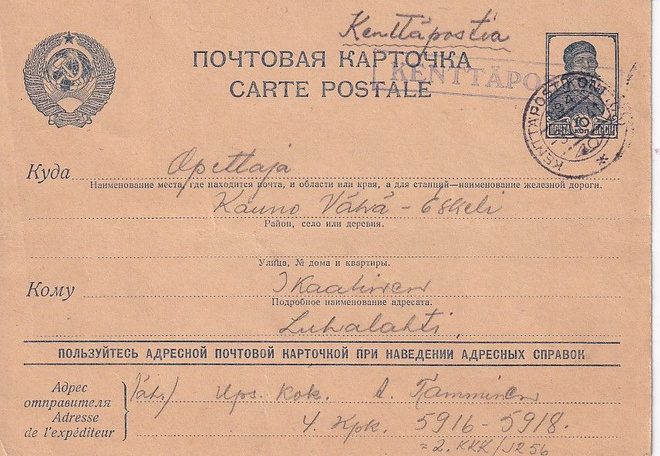 Kenttäpostia
ПОЧТОВАЯ КАРТОЧКА
KENTTÄPO
CARTE POSTALE
KENTTÄPOSTIKONTTORI
10 КОП
Куда Opettaja
Наименование места, где находится почта, и области или края, а для станций—наименование железной дороги.
Kauno Vähä-Eskeli
Район, село или деревня.
Улица, № дома и квартиры.
Кому Ikaalinen
Подробное наименование адресата.
Luhalahti.
ПОЛЬЗУЙТЕСЬ АДРЕСНОЙ ПОЧТОВОЙ КАРТОЧКОЙ ПРИ НАВЕДЕНИИ АДРЕСНЫХ СПРАВОК
Адрес
отправителя
Adresse
de l'expéditeur
Läh.) Ups. kok. A. Tamminen
4. Kpk. 5916-5918.
= 2. KKK/JR56